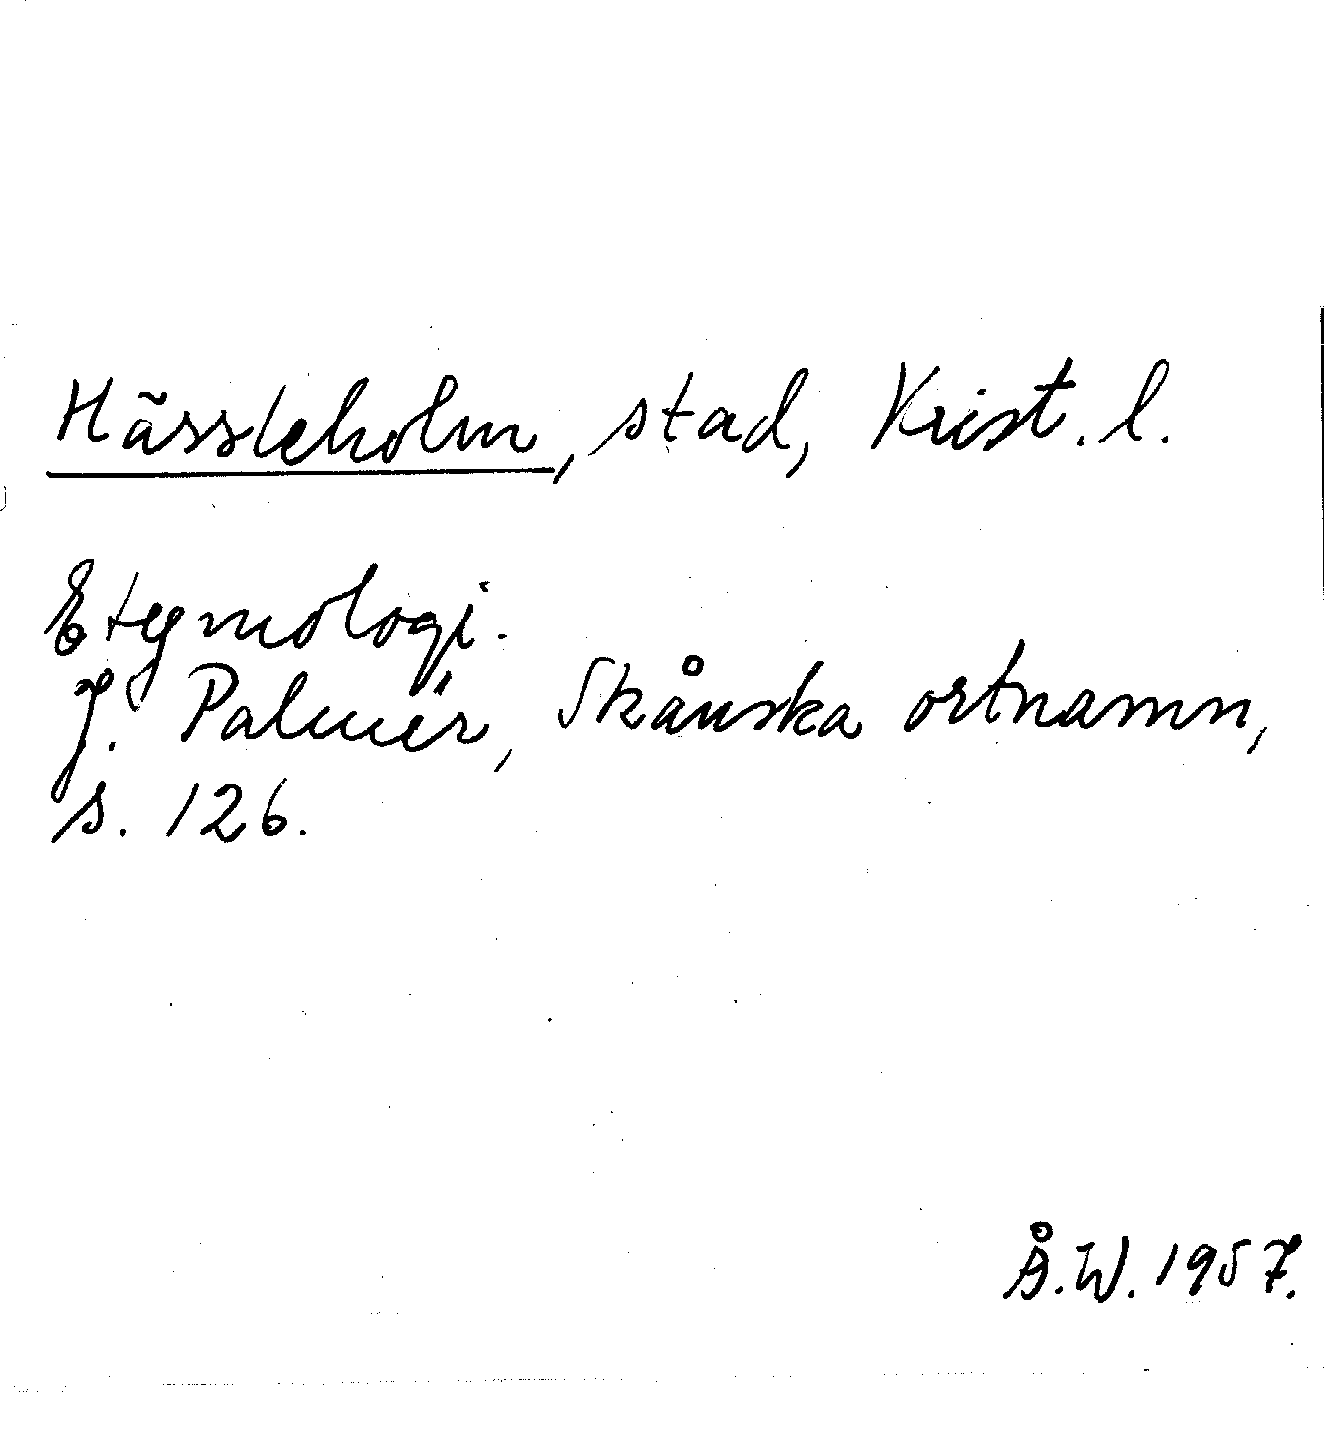 Hässleholm, stad, Krist. l.
Etymologi.
J. Palmér, Skånska ortnamn,
s. 126.
Å.W. 1957.